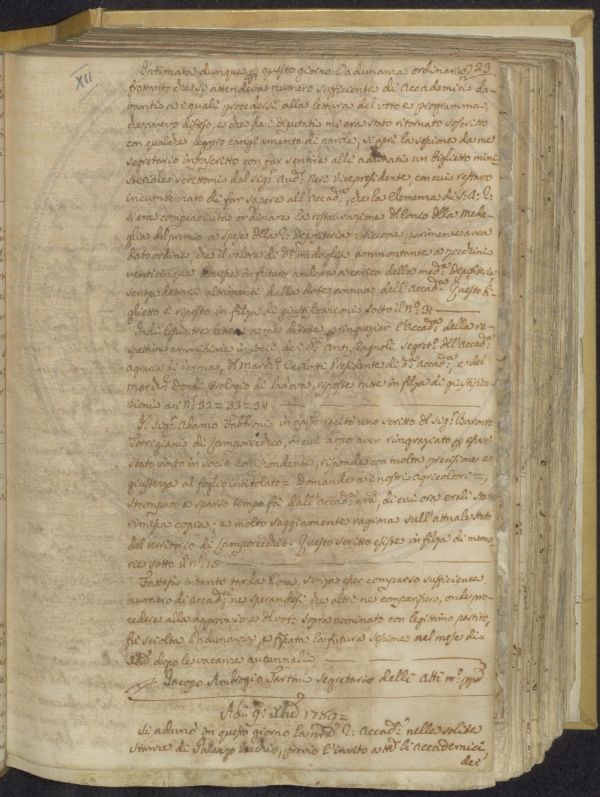 XII
723
Intimata dunque p questo giorno l'adunanza ordinaria,
frattanto che si attendeva numero sufficiente di Accademici da-
vanti a i quali procedersi alla lettura del voto e programma,
che avevo disteso, e che da i Deputati mi era stato ritornato soscritto
con qualche leggero cangiamento di parole, si aprì la sessione da me
segretario infrascritto con far sentire alli adunati un biglietto mini
steriale scrittomi dal Sig.r Aud.r vicepresidente con cui restavo
incumbenzato di far sapere all' Accad.a, che la Clemenza di S: A: R:
si era compiaciuta ordinare la restaurazione del Conio della Meda-
glia del premio a spese della R: Depositeria; siccome parimente avea
dato ordine, che il valore di d.a medaglia ammontante a zecchini
venticinque in futuro andare a carico della med.a Depositeria
senza detrarsi altrimenti dalla dote annua dell' Accad.a Questo bi-
glietto è riposto in filza di giustificazioni sotto il N.o 31
Indi lessi tre lettere a me dirette p ringraziar l' Accad.a della re-
spettiva ammissione in Socii de i Sig.ri Cagnoli Segret.o dell' Accad.a
agraria di Verona, del March.e Carlotti Presidente di d.a Accad.a, e del
March.e Dondi Orologio di Padova, riposte tutte in filza di giustifica-
zioni a i N.i 32 = 33 = 34
Il Sig.r Adamo Fabbroni in app.o recitò uno scritto del Sig.r Baronto
Torrigiani di Lamporecchio, in cui dopo aver ringraziato p essere
stato vinto in socio corrispondente, risponde con molta precisione e
giustezza al foglio intitolato = Domande a i nostri agricoltori =,
stampato e sparso tempo fà dall' Accad.a nra, di cui ora erali stata
rimessa copia; e molto saggiamente ragiona sull' attuale stato
del territorio di Lamporecchio. Questo scritto esiste in filza di memo
rie sotto il N.o 15
Fattasi intanto tarda l'ora, senza esser comparso sufficiente
numero di Accad.ci ne sperandosi che altri ne comparissero, onde pro-
cedere alla approvazione del voto sopra nominato con legittimo partito,
fù sciolta l'adunanza, e fissata la futura sessione nel mese di
dopo le vacanze autunnali
Jacopo Ambrogio Tartini segretario delli Atti m.o pp.a
A di 9: xbre 1789 =
Si adunò in questo giorno la nra R: Accad.a nelle solite
stanze di Palazzo Vecchio, previo l'invito a tti li Accademici
de'